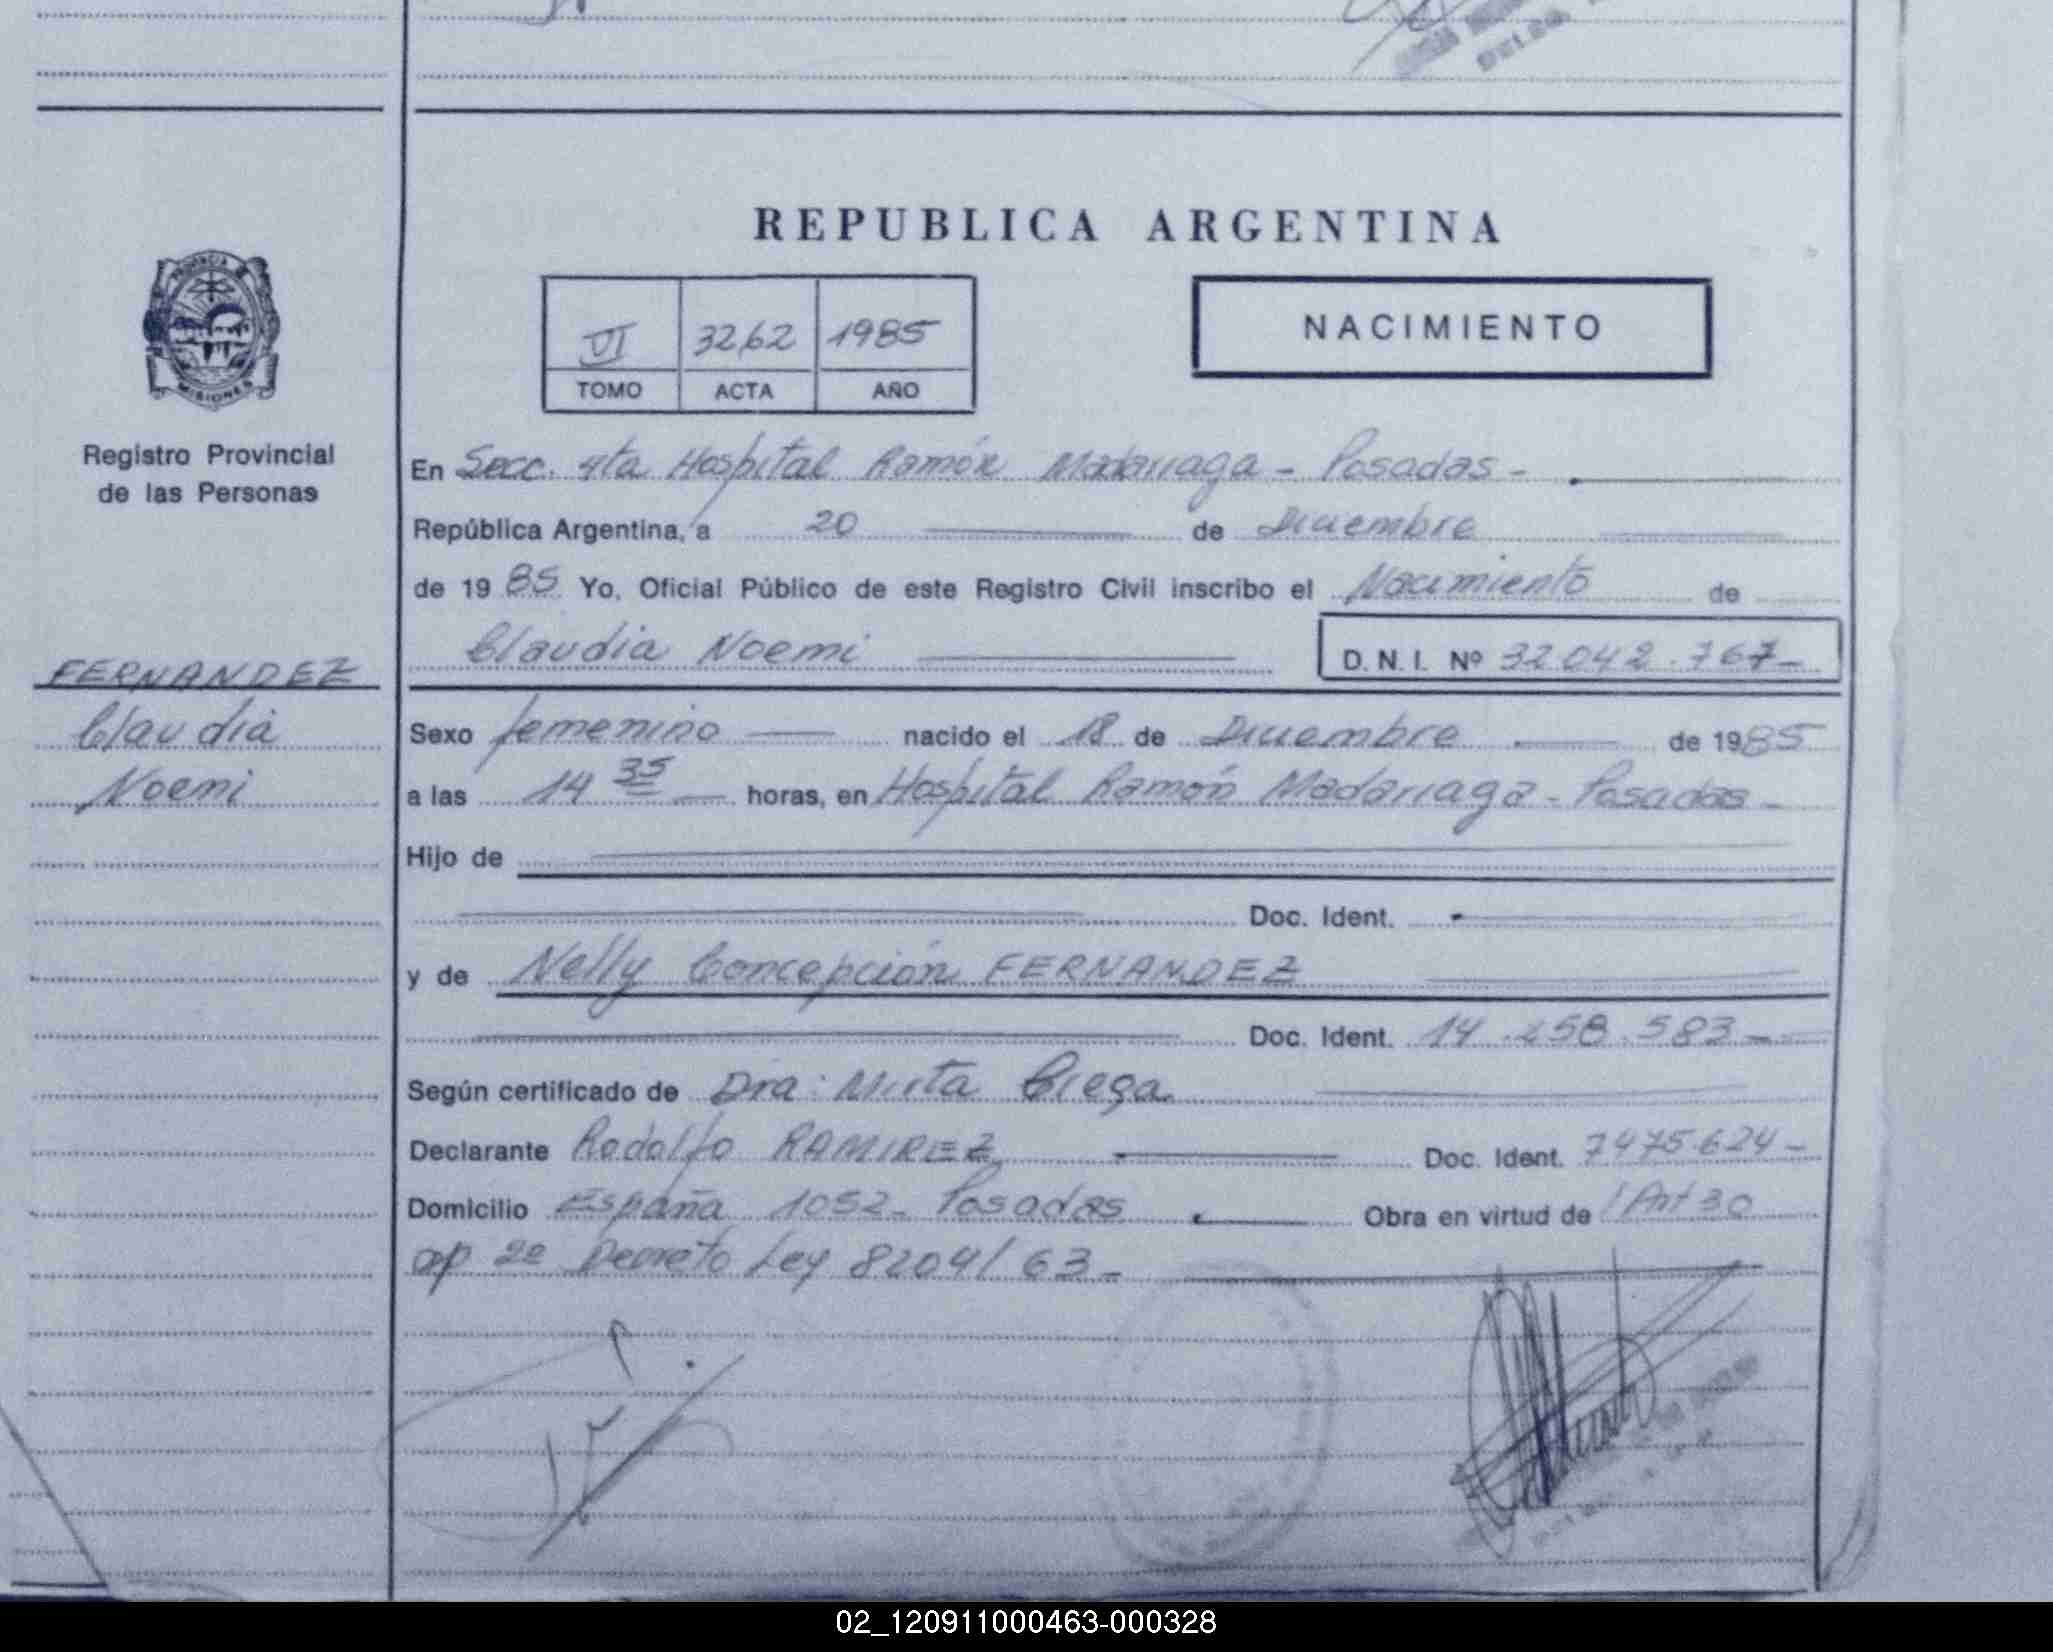 REPUBLICA ARGENTINA
PROVINCIA DE
MISIONES
Registro Provincial
de las Personas
VI 3262 1985
TOMO ACTA AÑO
NACIMIENTO
En Secc. 4ta Hospital Ramón Madariaga - Posadas -
República Argentina, a 20 de Diciembre
de 1985 Yo, Oficial Público de este Registro Civil inscribo el Nacimiento de
Claudia Noemi D.N.I. Nº 32.042.767-
FERNANDEZ
Claudia
Noemi
Sexo femenino nacido el 18 de Diciembre de 1985
a las 14 35 horas, en Hospital Ramón Madariaga - Posadas -
Hijo de
Doc. Ident.
y de Nelly Concepción FERNANDEZ
Doc. Ident. 14.258.583-
Según certificado de Dra: Mirta
Declarante Rodolfo RAMIREZ Doc. Ident. 7475.624-
Domicilio España 1052- Posadas Obra en virtud de Art 30
ap 2º Decreto Ley 8204/63-
02_120911000463-000328